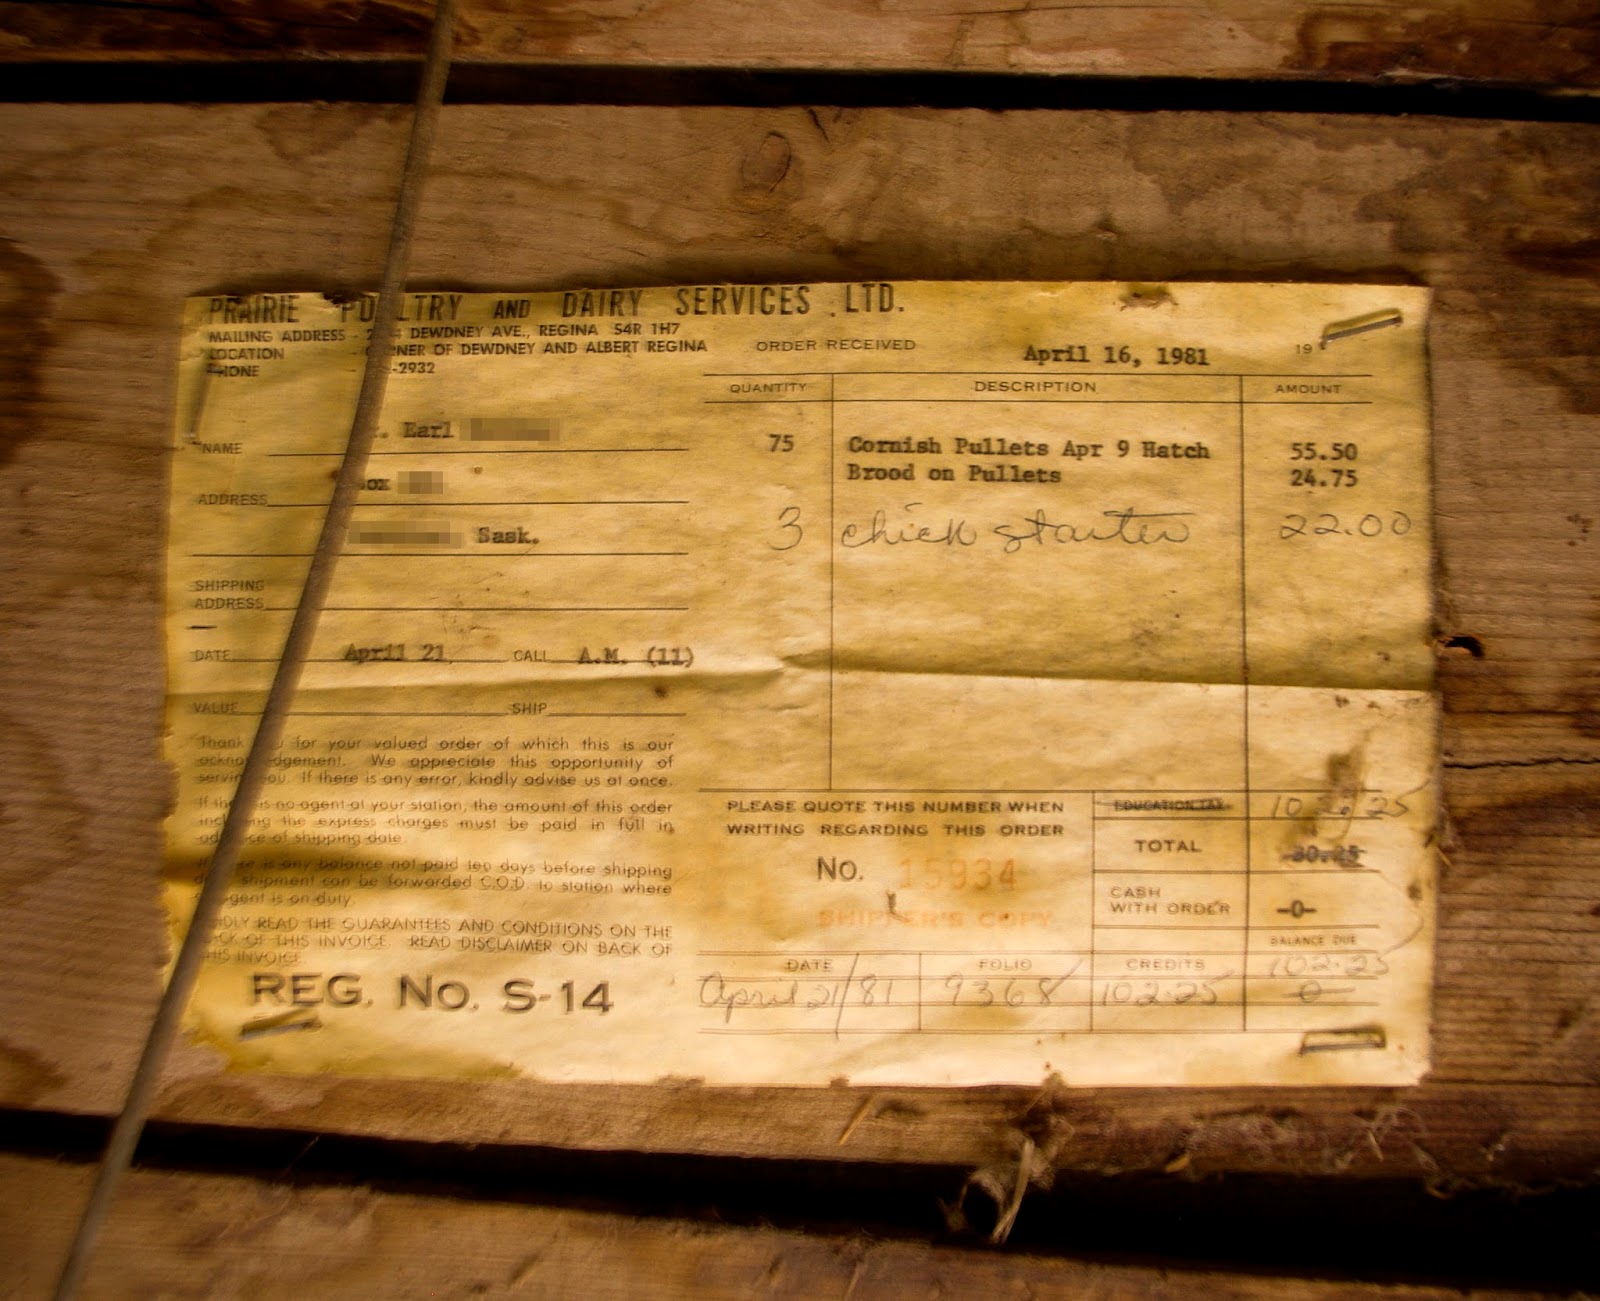 PRAIRIE POULTRY AND DAIRY SERVICES LTD.
MAILING ADDRESS - DEWDNEY AVE., REGINA S4R 1H7
LOCATION - CORNER OF DEWDNEY AND ALBERT REGINA
PHONE -2932
NAME Earl
ADDRESS Box
Sask.
SHIPPING
ADDRESS
DATE April 21, CALL A.M. (11)
VALUE SHIP
Thank you for your valued order of which this is our
acknowledgement. We appreciate this opportunity of
serving you. If there is any error, kindly advise us at once.
If there is no agent at your station, the amount of this order
including the express charges must be paid in full in
advance of shipping date.
If there is any balance not paid ten days before shipping
date shipment can be forwarded C.O.D. to station where
agent is on duty.
KINDLY READ THE GUARANTEES AND CONDITIONS ON THE
BACK OF THIS INVOICE. READ DISCLAIMER ON BACK OF
THIS INVOICE
REG. No. S-14
ORDER RECEIVED April 16, 1981 19
QUANTITY DESCRIPTION AMOUNT
75 Cornish Pullets Apr 9 Hatch 55.50
Brood on Pullets 24.75
3 chick starter 22.00
PLEASE QUOTE THIS NUMBER WHEN
WRITING REGARDING THIS ORDER
No. 15934
SHIPPER'S COPY
EDUCATION TAX 102.25
TOTAL 80.25
CASH
WITH ORDER -0-
BALANCE DUE
102.25
DATE FOLIO CREDITS
April 21/81 9368 102.25 0